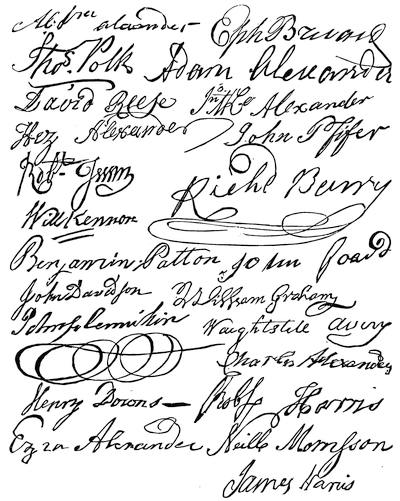 Abm alexander Eph Brevard
Thos. Polk Adam Alexander
David Reese Jno McK Alexander
Hez Alexander John Pfifer
Robt Irwin
Richd Barry
Will Kennon
Benjamin Patton John foard
John Davidson William Graham
John flenniken Waightstill avery
Charles Alexander
Henry Downs Robt Harris
Ezra Alexander Neill Morrison
James Harris